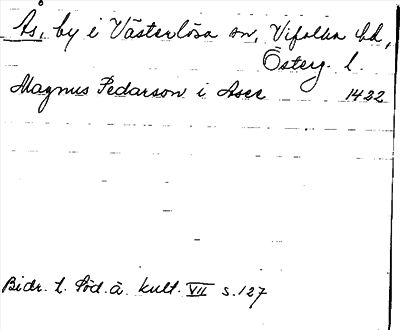 Ås, by i Västerlösa sn, Vifolka hd,
Österg. l.
Magnus Pedarson i Aser 1422
Bidr. t. Söd. å. kult. VII s. 127